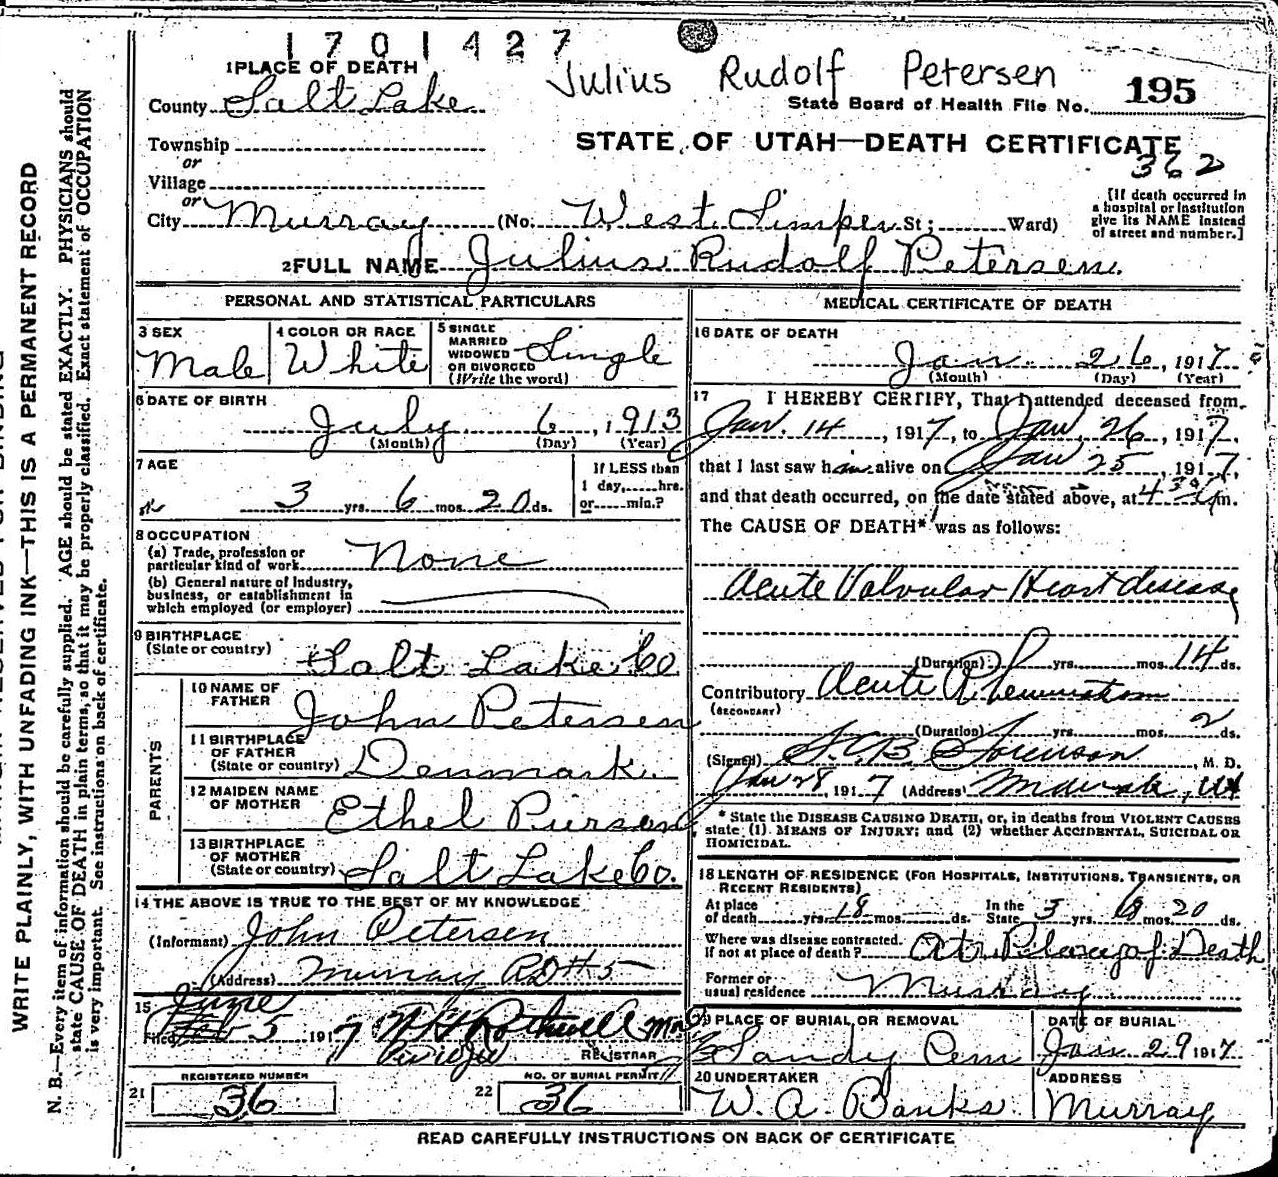 1701427
Julius Rudolf Petersen
1 PLACE OF DEATH
County Salt Lake
State Board of Health File No. 195
Township
STATE OF UTAH—DEATH CERTIFICATE
or
362
Village
or
City Murray (No. West Simper St; Ward)
[If death occurred in
a hospital or institution
give its NAME instead
of street and number.]
2 FULL NAME Julius Rudolf Petersen.
PERSONAL AND STATISTICAL PARTICULARS
3 SEX
Male
4 COLOR OR RACE
White
5 SINGLE
MARRIED
WIDOWED
OR DIVORCED
(Write the word)
Single
6 DATE OF BIRTH
July 6, 1913
(Month) (Day) (Year)
7 AGE
3 yrs. 6 mos. 20 ds.
If LESS than
1 day,......hrs.
or......min.?
8 OCCUPATION
(a) Trade, profession or
particular kind of work None
(b) General nature of Industry,
business, or establishment in
which employed (or employer)
9 BIRTHPLACE
(State or country)
Salt Lake Co
PARENTS
10 NAME OF
FATHER
John Petersen
11 BIRTHPLACE
OF FATHER
(State or country) Denmark.
12 MAIDEN NAME
OF MOTHER
Ethel Pierson
13 BIRTHPLACE
OF MOTHER
(State or country) Salt Lake Co.
14 THE ABOVE IS TRUE TO THE BEST OF MY KNOWLEDGE
(Informant) John Petersen
(Address) Murray RD #5
15
June
Filed Feb 5 1917
REGISTRAR
REGISTERED NUMBER
21 36
NO. OF BURIAL PERMIT
22 36
MEDICAL CERTIFICATE OF DEATH
16 DATE OF DEATH
Jan. 26, 1917
(Month) (Day) (Year)
17 I HEREBY CERTIFY, That I attended deceased from
Jan. 14, 1917, to Jan. 26, 1917,
that I last saw him alive on Jan 25, 1917,
and that death occurred, on the date stated above, at 4 m.
The CAUSE OF DEATH* was as follows:
Acute Valvular Heart disease
(Duration) yrs. mos. 14 ds.
Contributory Acute Rheumatism
(SECONDARY)
(Duration) yrs. mos. 2 ds.
(Signed) Sorenson, M. D.
Jan 28, 1917 (Address)
* State the DISEASE CAUSING DEATH, or, in deaths from VIOLENT CAUSES
state (1). MEANS OF INJURY; and (2) whether ACCIDENTAL, SUICIDAL OR
HOMICIDAL.
18 LENGTH OF RESIDENCE (FOR HOSPITALS, INSTITUTIONS, TRANSIENTS, OR
RECENT RESIDENTS)
At place
of death yrs. 18 mos. ds.
In the
State 3 yrs. 6 mos. 20 ds.
Where was disease contracted.
If not at place of death? At Place of Death
Former or
usual residence Murray
19 PLACE OF BURIAL OR REMOVAL
Sandy Cem
DATE OF BURIAL
Jan. 29 1917
20 UNDERTAKER
W. A. Banks.
ADDRESS
Murray
READ CAREFULLY INSTRUCTIONS ON BACK OF CERTIFICATE
WRITE PLAINLY, WITH UNFADING INK—THIS IS A PERMANENT RECORD
N. B.—Every item of information should be carefully supplied. AGE should be stated EXACTLY. PHYSICIANS should
state CAUSE OF DEATH in plain terms, so that it may be properly classified. Exact statement of OCCUPATION
is very important. See instructions on back of certificate.